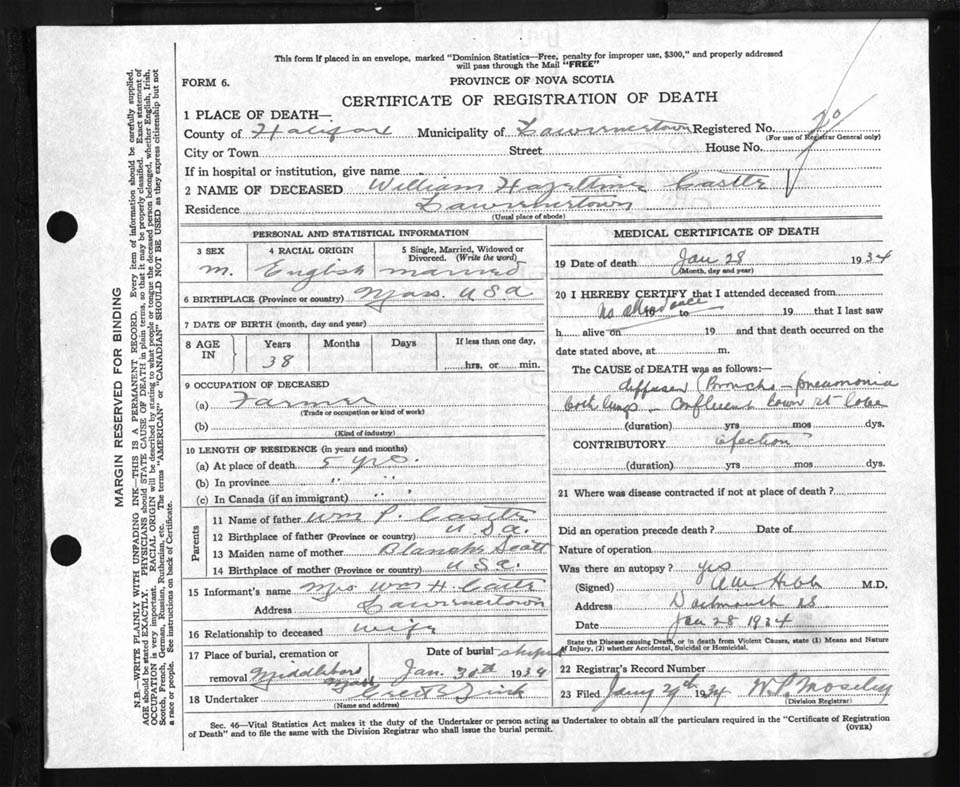 This form if placed in an envelope, marked "Dominion Statistics—Free, penalty for improper use, $300," and properly addressed
will pass through the Mail "FREE"
FORM 6.
PROVINCE OF NOVA SCOTIA
CERTIFICATE OF REGISTRATION OF DEATH
1 PLACE OF DEATH—
County of Halifax Municipality of Lawrencetown Registered No.
(For use of Registrar General only)
City or Town Street House No.
If in hospital or institution, give name
2 NAME OF DECEASED William Hazeltine Castle
Residence Lawrencetown
(Usual place of abode)
PERSONAL AND STATISTICAL INFORMATION
3 SEX 4 RACIAL ORIGIN 5 Single, Married, Widowed or
Divorced. (Write the word)
m. English married
6 BIRTHPLACE (Province or country) Mass. USA
7 DATE OF BIRTH (month, day and year)
8 AGE IN Years Months Days If less than one day,
38 hrs. or min.
9 OCCUPATION OF DECEASED
(a) Farmer
(Trade or occupation or kind of work)
(b)
(Kind of industry)
10 LENGTH OF RESIDENCE (in years and months)
(a) At place of death 5 yrs.
(b) In province " "
(c) In Canada (if an immigrant) " "
Parents
11 Name of father Wm P. Castle
12 Birthplace of father (Province or country) U.S.A.
13 Maiden name of mother Blanche Scott
14 Birthplace of mother (Province or country) U.S.A.
15 Informant's name Mrs Wm H. Castle
Address Lawrencetown
16 Relationship to deceased wife
17 Place of burial, cremation or Date of burial shipped
removal Middleboro Mass Jan. 30th 1934
18 Undertaker Zink
(Name and address)
MEDICAL CERTIFICATE OF DEATH
19 Date of death Jan 28 1934
(Month, day and year)
20 I HEREBY CERTIFY that I attended deceased from
no attendance
19 to 19 that I last saw
h alive on 19 and that death occurred on the
date stated above, at m.
The CAUSE OF DEATH was as follows:—
diffused Broncho-pneumonia
both lungs - Confluent lower rt lobe
(duration) yrs mos dys.
CONTRIBUTORY
(duration) yrs mos dys.
21 Where was disease contracted if not at place of death?
Did an operation precede death? Date of
Nature of operation
Was there an autopsy? yes
(Signed) M.D.
Address Dartmouth NS
Date Jan 28 1934
State the Disease causing Death, or in death from Violent Causes, state (1) Means and Nature
of Injury, (2) whether Accidental, Suicidal or Homicidal.
22 Registrar's Record Number
23 Filed Jany 29th 1934 W.P. Moseley
(Division Registrar)
Sec. 46—Vital Statistics Act makes it the duty of the Undertaker or person acting as Undertaker to obtain all the particulars required in the "Certificate of Registration
of Death" and to file the same with the Division Registrar who shall issue the burial permit.
(OVER)
MARGIN RESERVED FOR BINDING
N.B.—WRITE PLAINLY WITH UNFADING INK—THIS IS A PERMANENT RECORD. Every item of information should be carefully supplied.
AGE should be stated EXACTLY. PHYSICIANS should STATE CAUSE OF DEATH in plain terms, so that it may be properly classified. Exact statement of
OCCUPATION is very important. RACIAL ORIGIN will be described by stating to what people or tongue the deceased person belonged, whether English, Irish,
Scotch, French, German, Russian, Ruthenian, etc. The terms "AMERICAN" or "CANADIAN" SHOULD NOT BE USED as they express citizenship but not
a race or people. See instructions on back of Certificate.